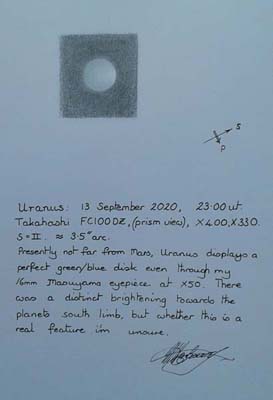 S
P
Uranus: 13 September 2020, 23.00ut.
Takahashi FC100DZ, (prism view), X400, X330.
S=II. ≈ 3.5"arc.
Presently not far from Mars, Uranus displays a
perfect green/blue disk even through my
16mm Masuyama eyepiece at X50. There
was a distinct brightening towards the
planets south limb, but whether this is a
real feature i'm unsure.